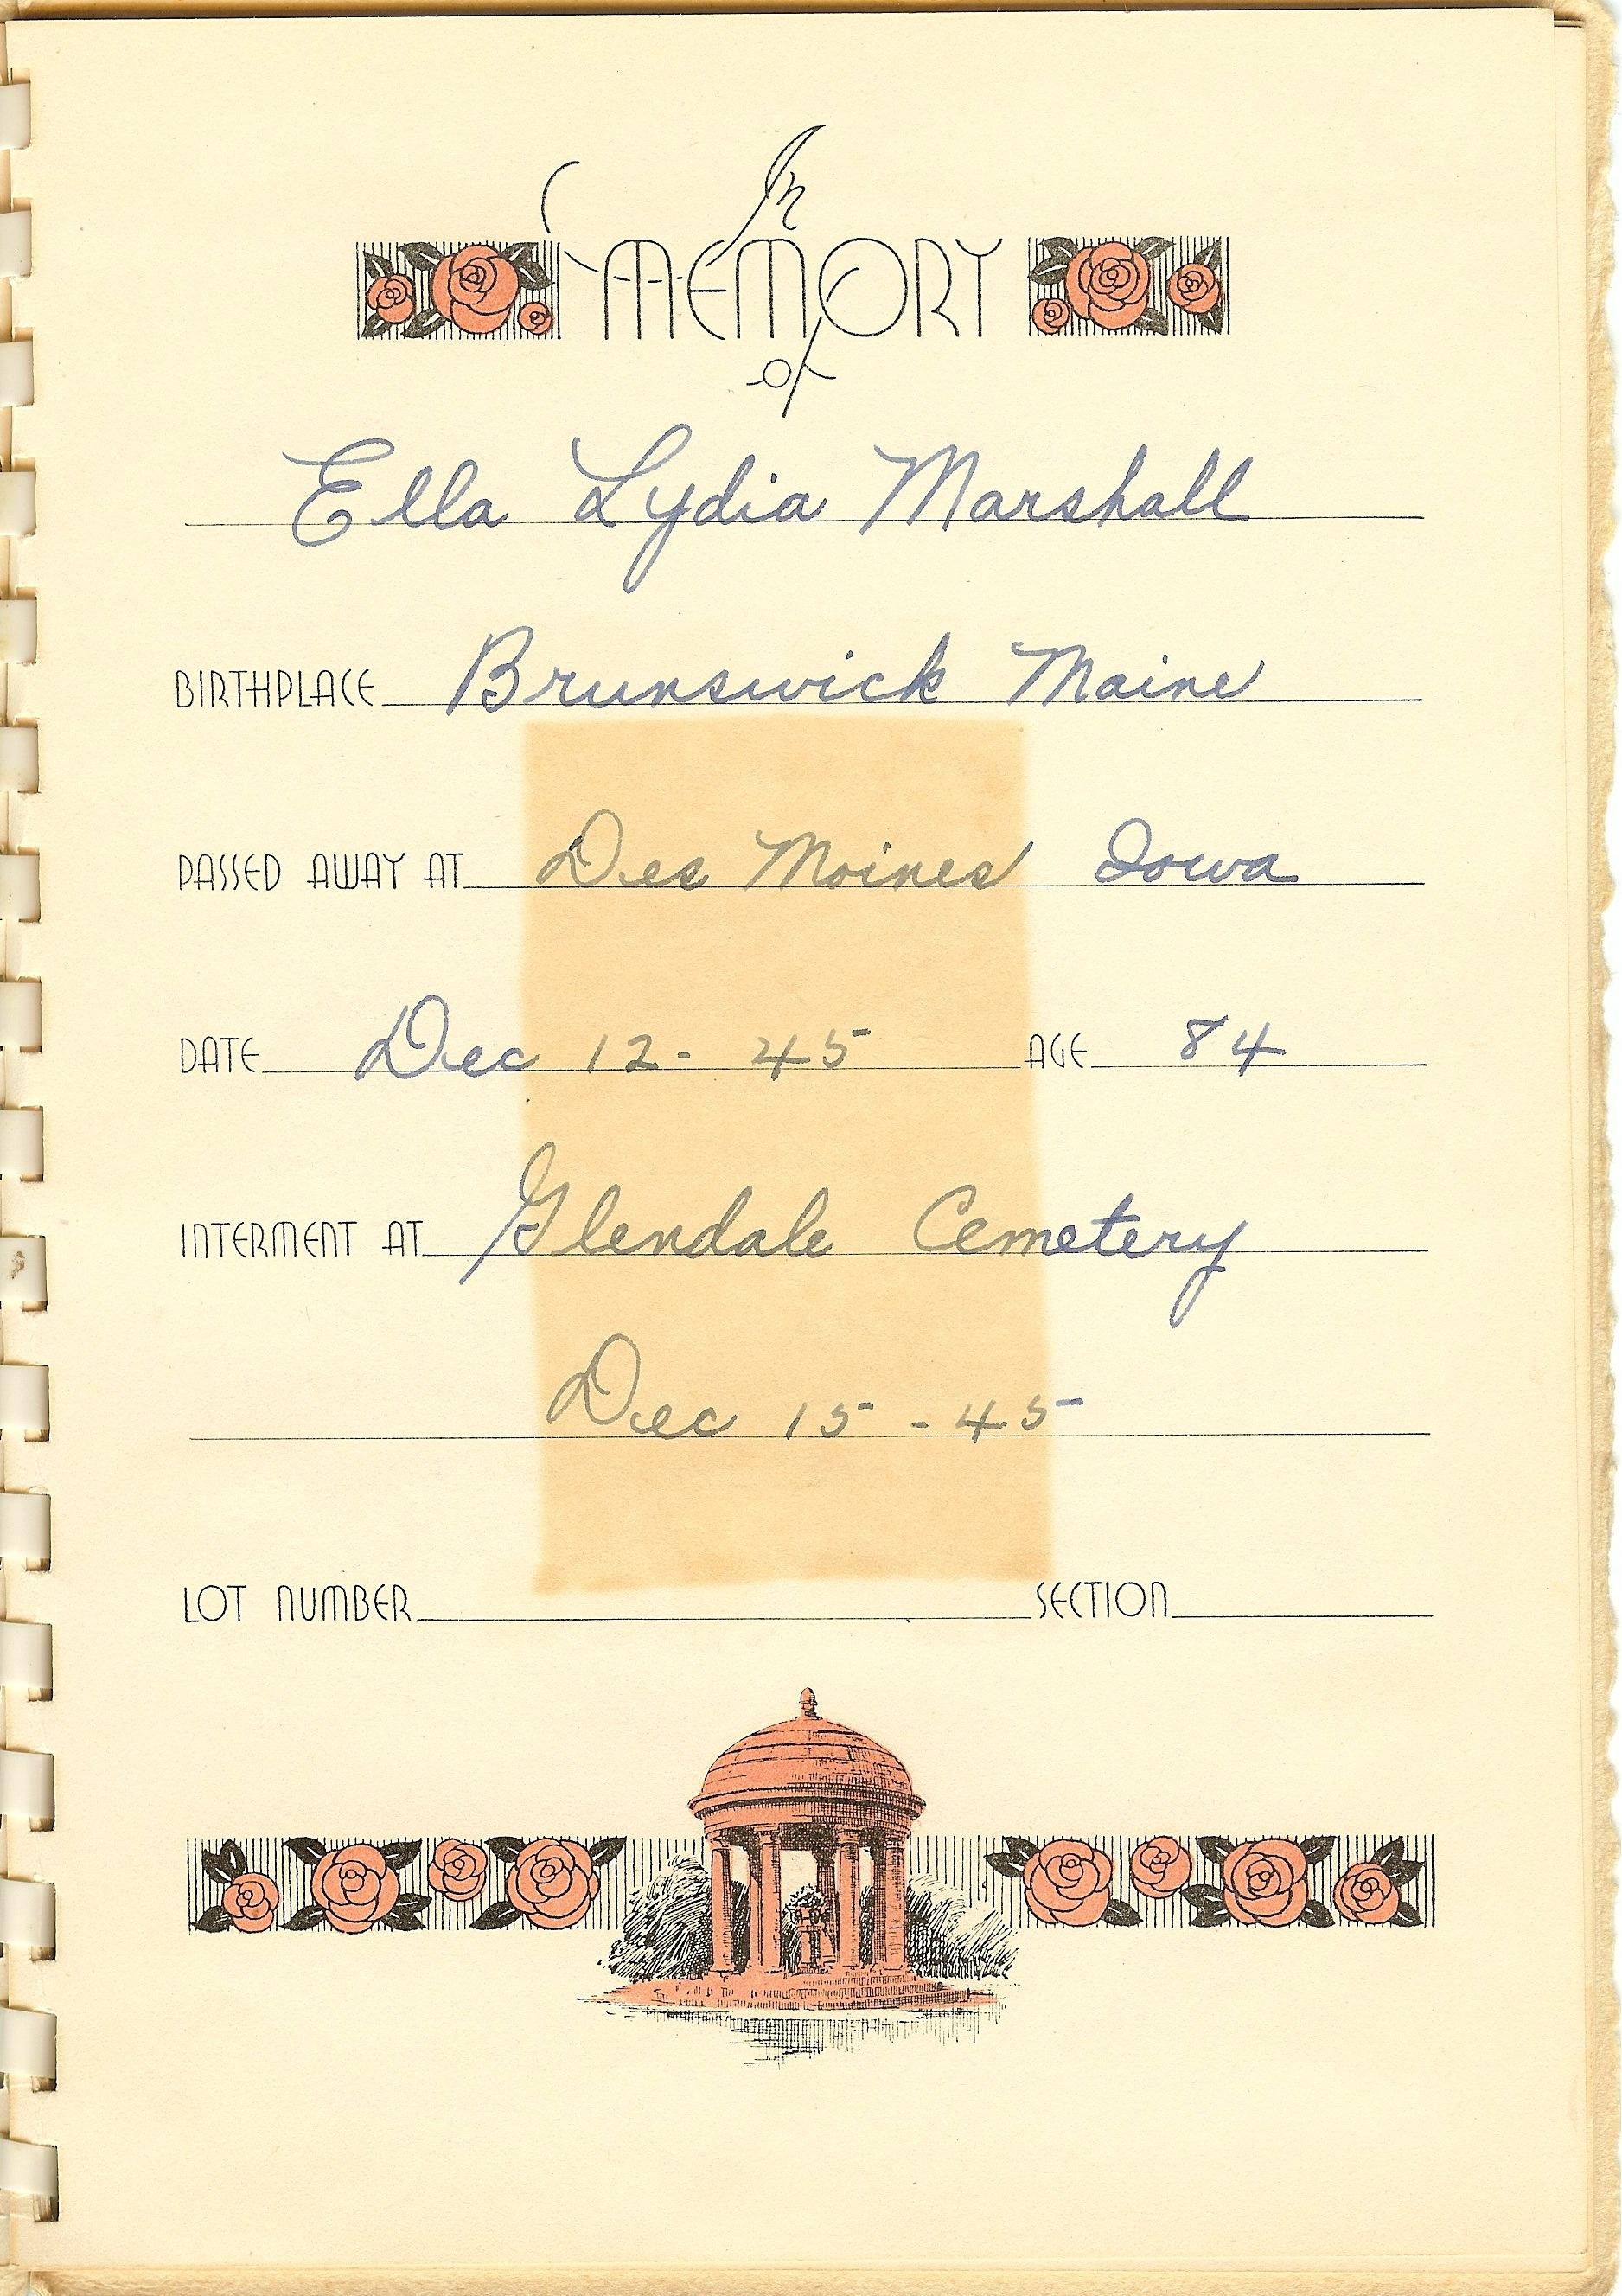 In
MEMORY
of
Ella Lydia Marshall
BIRTHPLACE Brunswick Maine
PASSED AWAY AT Des Moines Iowa
DATE Dec 12 - 45 AGE 84
INTERMENT AT Glendale Cemetery
Dec 15 - 45
LOT NUMBER SECTION